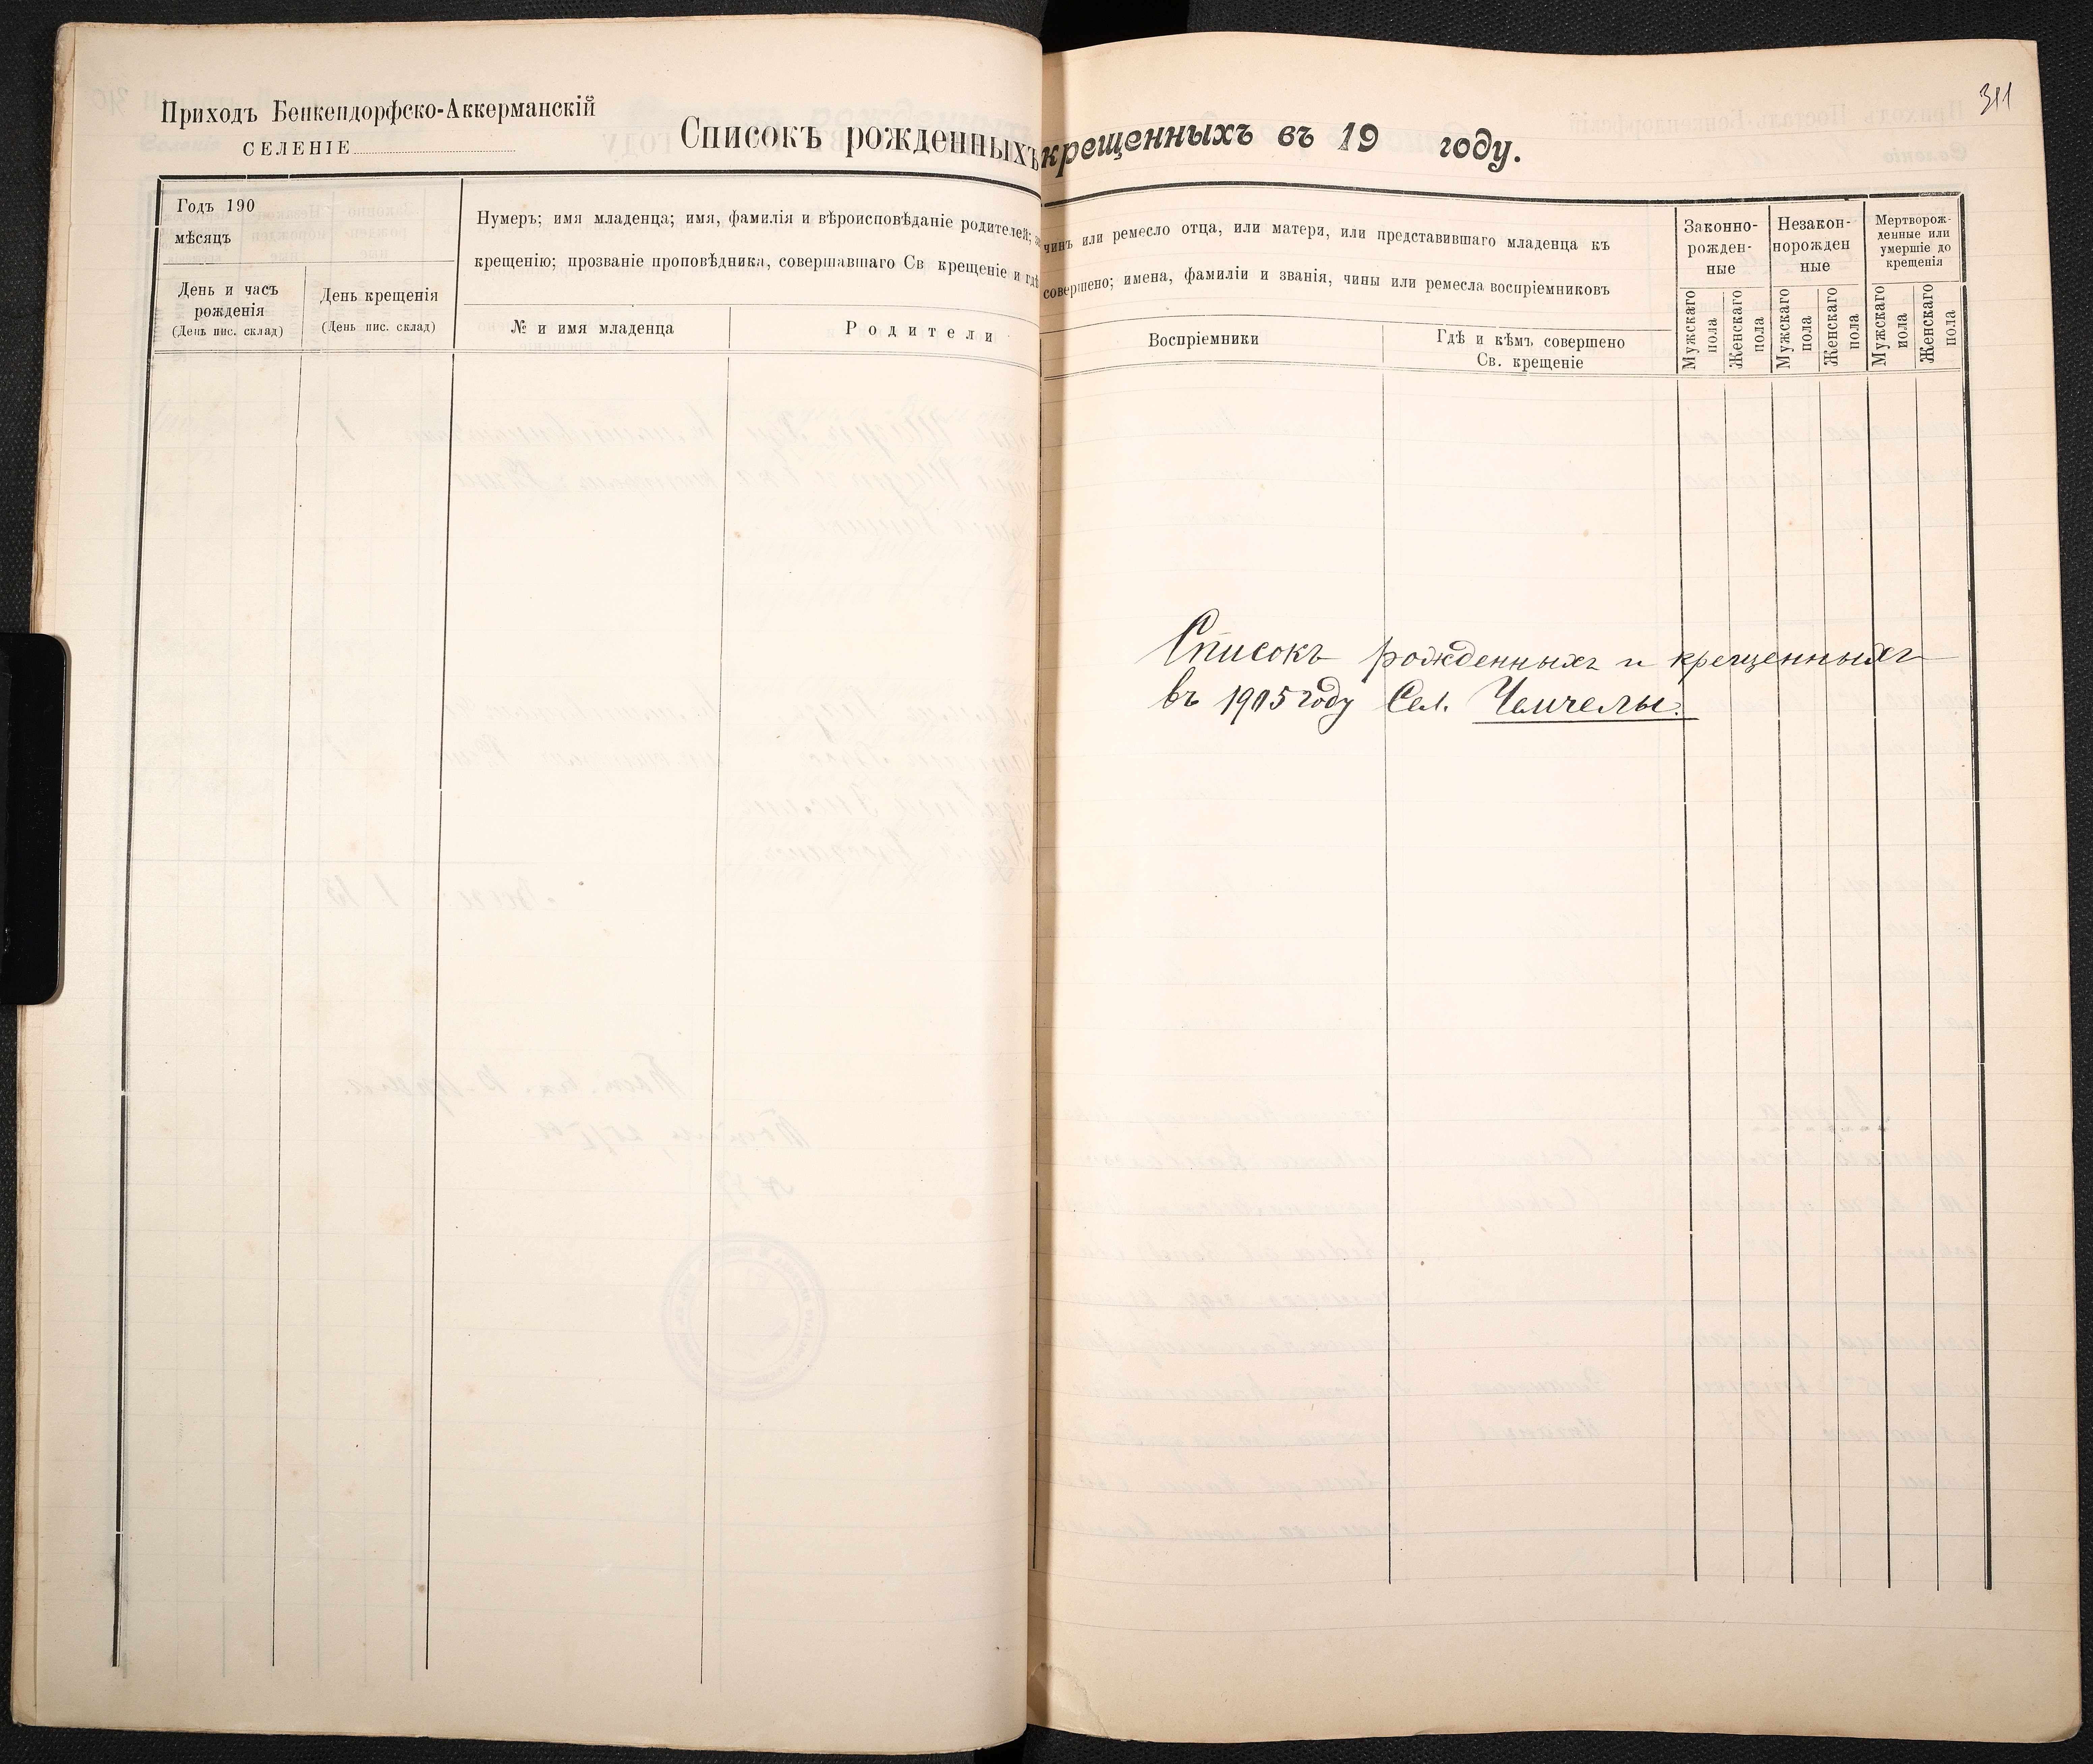 Приходъ Бенкендорфско-Аккерманскій
СЕЛЕНІЕ
Списокъ рожденныхъ
Годъ 190
мѣсяцъ
День и часъ
рожденія
(День пис. склад)
День крещенія
(День пис. склад)
Нумеръ; имя младенца; имя, фамилія и вѣроисповѣданіе родителей;
крещенію; прозваніе проповѣдника, совершавшаго Св крещеніе и гдѣ
№ и имя младенца
Родители
311
крещенныхъ въ 19 году.
чинъ или ремесло отца, или матери, или представившаго младенца къ
совершено; имена, фамиліи и званія, чины или ремесла воспріемниковъ
Воспріемники
Гдѣ и кѣмъ совершено
Св. крещеніе
Законно-
рожден-
ные
Незакон-
норожден
ные
Мертворож-
денные или
умершіе до
крещенія
Мужскаго
пола
Женскаго
пола
Мужскаго
пола
Женскаго
пола
Мужскаго
пола
Женскаго
пола
Списокъ рожденныхъ и крещенныхъ
въ 1905 году Сел. Чемчелы.